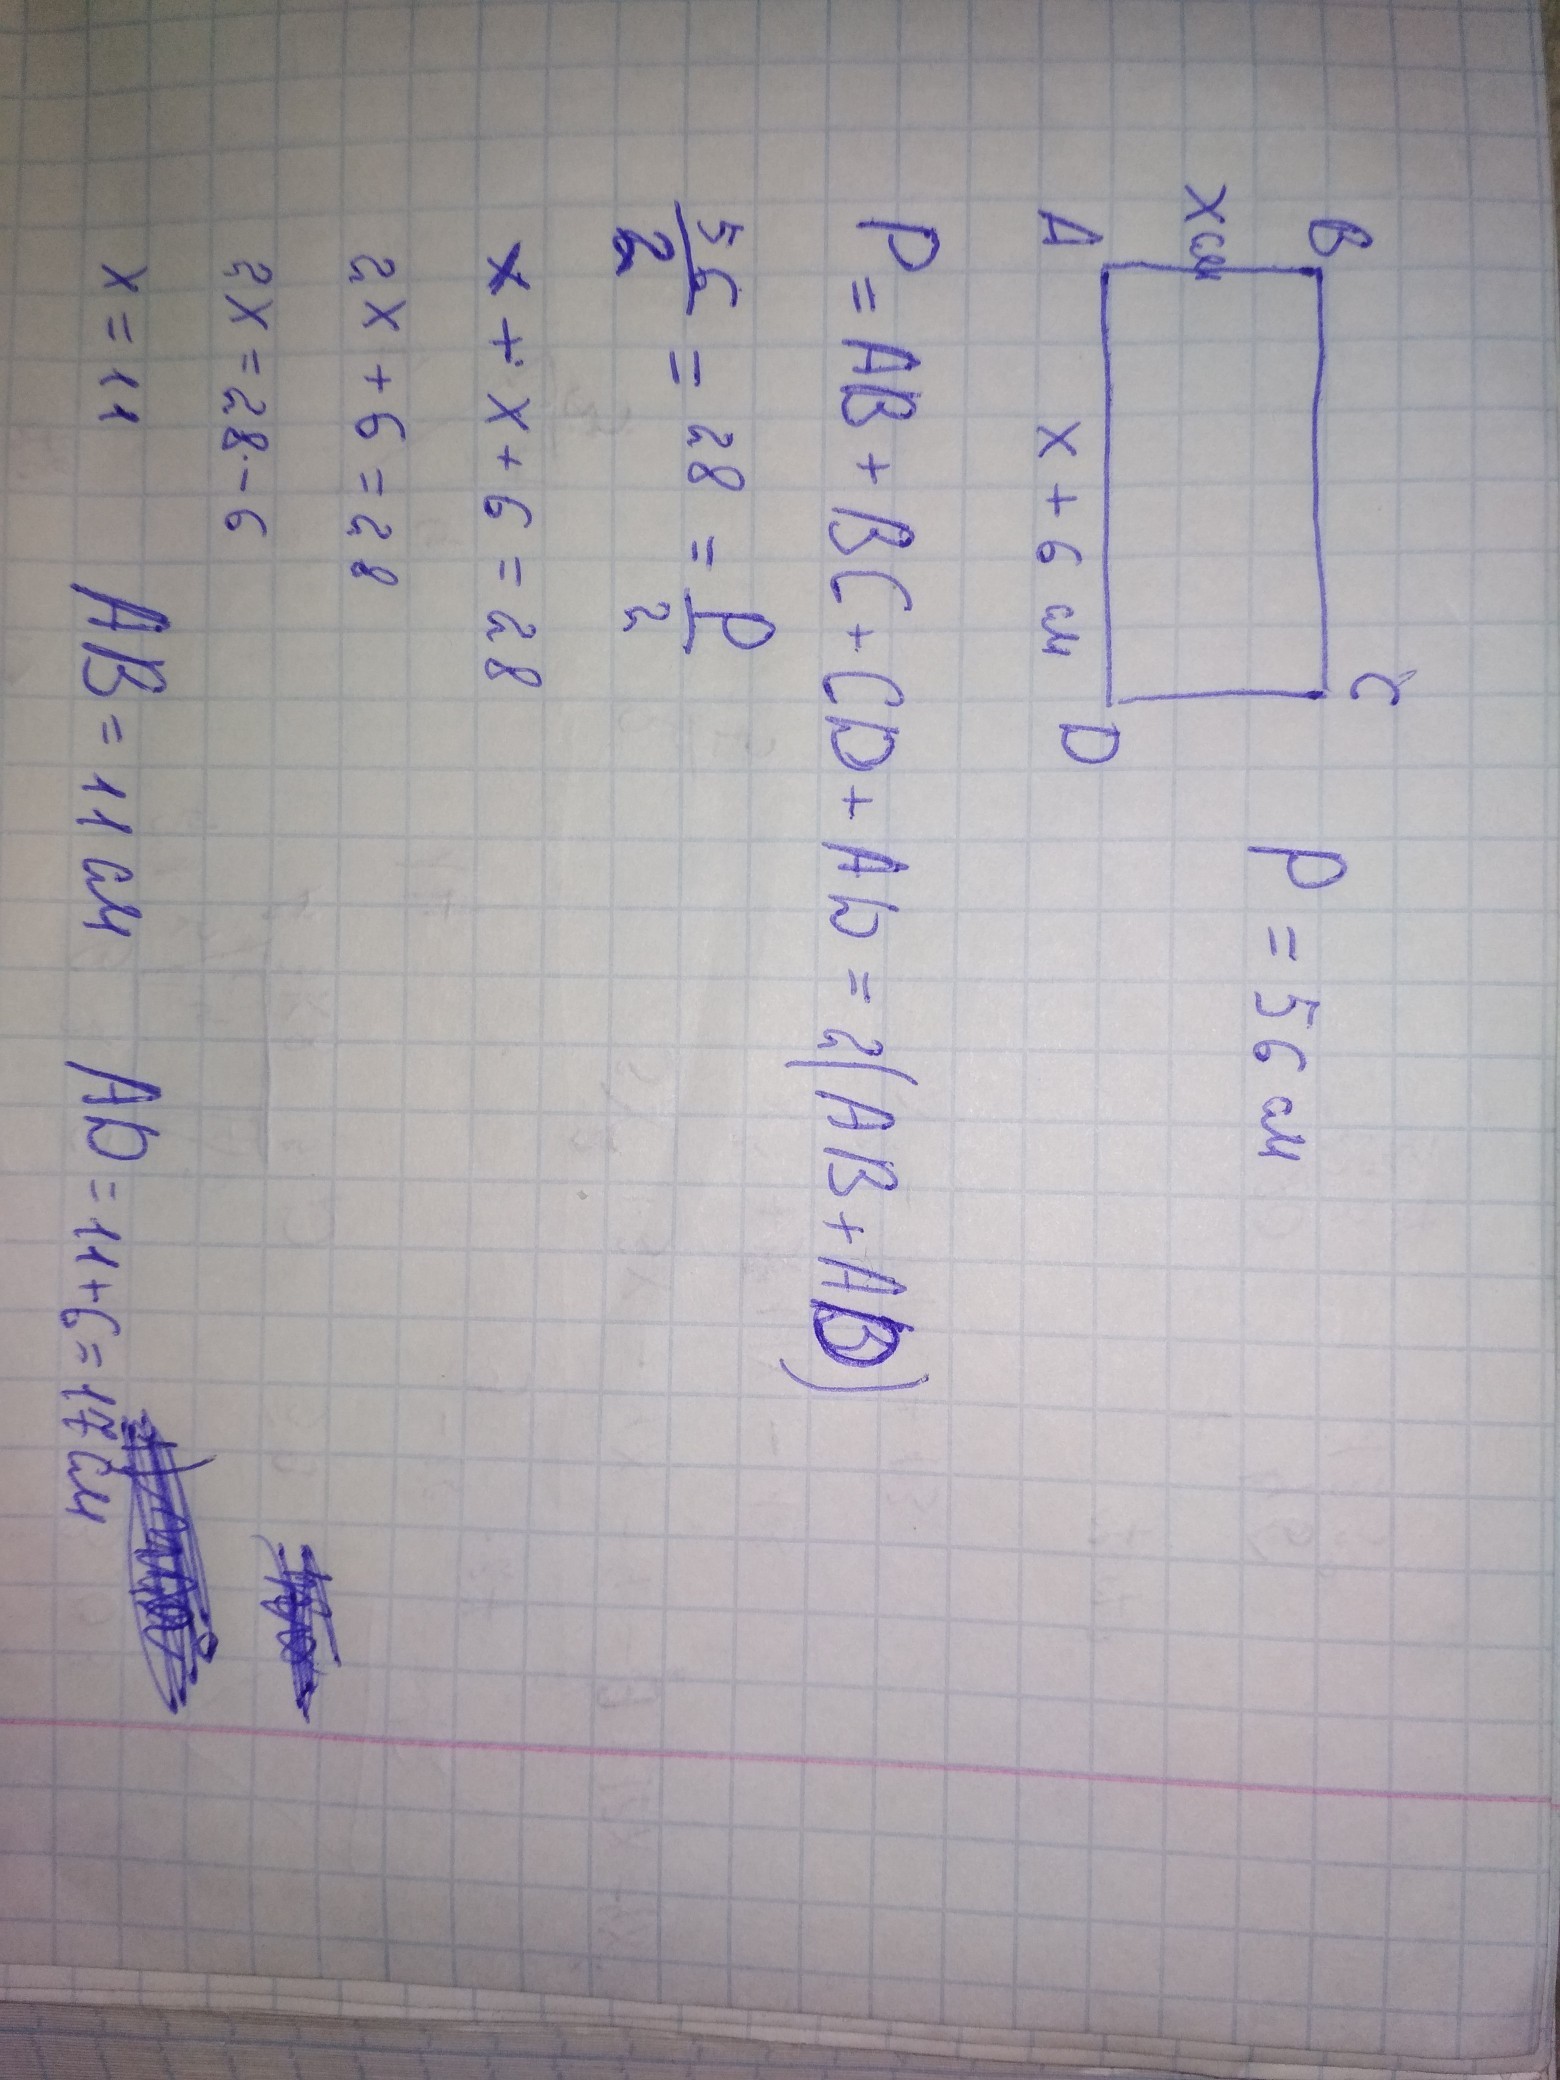 B C
x см
P = 56 см
A D
x + 6 см
P = AB + BC + CD + AD = 2(AB + AD)
56/2 = 28 = P/2
x + x + 6 = 28
2x + 6 = 28
2x = 28 - 6
x = 11
AB = 11 см AD = 11 + 6 = 17 см